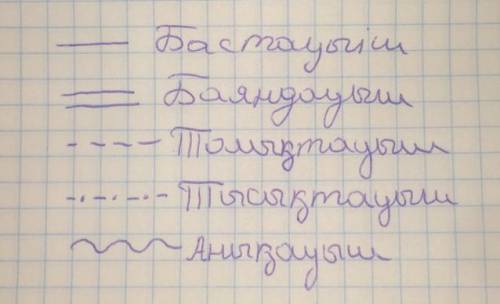 Бастауыш
Баяндауыш
Толықтауыш
Пысықтауыш
Анықауыш